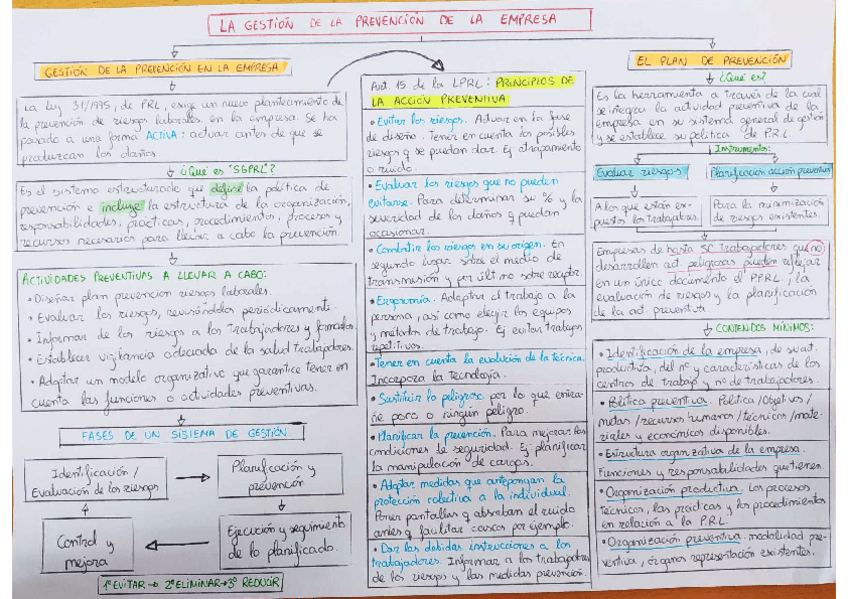 LA GESTIÓN DE LA PREVENCIÓN DE LA EMPRESA
GESTIÓN DE LA PREVENCIÓN EN LA EMPRESA
La Ley 31/1995, de PRL, exige un nuevo planteamiento de
la prevención de riesgos laborales en la empresa. Se ha
pasado a una forma ACTIVA: actuar antes de que se
produzcan los daños.
¿Qué es "SGPRL"?
Es el sistema estructurado que define la política de
prevención e incluye la estructura de la organización,
responsabilidades, prácticas, procedimientos, procesos y
recursos necesarios para llevar a cabo la prevención.
ACTIVIDADES PREVENTIVAS A LLEVAR A CABO:
• Diseñar plan prevención riesgos laborales.
• Evaluar los riesgos, revisándolos periódicamente.
• Informar de los riesgos a los trabajadores y formarlos.
• Establecer vigilancia adecuada de la salud trabajadores.
• Adoptar un modelo organizativo que garantice tener en
cuenta las funciones o actividades preventivas.
FASES DE UN SISTEMA DE GESTIÓN
Identificación /
Evaluación de los riesgos
Planificación y
prevención
Control y
mejora
Ejecución y seguimiento
de lo planificado.
1º EVITAR → 2º ELIMINAR → 3º REDUCIR
Art. 15 de la LPRL: PRINCIPIOS DE
LA ACCIÓN PREVENTIVA
• Evitar los riesgos. Actuar en la fase
de diseño. Tener en cuenta los posibles
riesgos q se puedan dar. Ej atrapamiento
o ruido.
• Evaluar los riesgos que no pueden
evitarse. Para determinar su % y la
severidad de los daños q puedan
ocasionar.
• Combatir los riesgos en su origen. En
segundo lugar sobre el medio de
transmisión y por último sobre receptor.
• Ergonomía. Adaptar el trabajo a la
persona, así como elegir los equipos
y métodos de trabajo. Ej evitar trabajos
repetitivos.
• Tener en cuenta la evolución de la técnica.
Incorpora la tecnología.
• Sustituir lo peligroso por lo que entra-
ñe poco o ningún peligro.
• Planificar la prevención. Para mejorar las
condiciones de seguridad. Ej planificar
la manipulación de cargas.
• Adoptar medidas que antepongan la
protección colectiva a la individual.
Poner pantallas q absorban el ruido
antes q facilitar cascos por ejemplo.
• Dar las debidas instrucciones a los
trabajadores. Informar a los trabajadores
de los riesgos y las medidas prevención.
EL PLAN DE PREVENCIÓN
¿Qué es?
Es la herramienta a través de la cual
se integra la actividad preventiva de la
empresa en su sistema general de gestión
y se establece su política de P.R.L.
Instrumentos:
Evaluar riesgos
Planificación acción preventiva
A los que están ex-
puestos los trabajadores.
Para la minimización
de riesgos existentes.
Empresas de hasta 50 trabajadores que no
desarrollen act. peligrosas pueden reflejar
en un único documento el PPRL, la
evaluación de riesgos y la planificación
de la act preventiva.
CONTENIDOS MÍNIMOS:
• Identificación de la empresa, de su act.
productiva, del nº y características de los
centros de trabajo y nº de trabajadores.
• Política preventiva. Política / Objetivos /
metas / recursos humanos / técnicos / mate-
riales y económicos disponibles.
• Estructura organizativa de la empresa.
Funciones y responsabilidades que tienen.
• Organización productiva. Los procesos
técnicos, las prácticas y los procedimientos
en relación a la P.R.L.
• Organización preventiva. modalidad pre-
ventiva, órganos representación existentes.